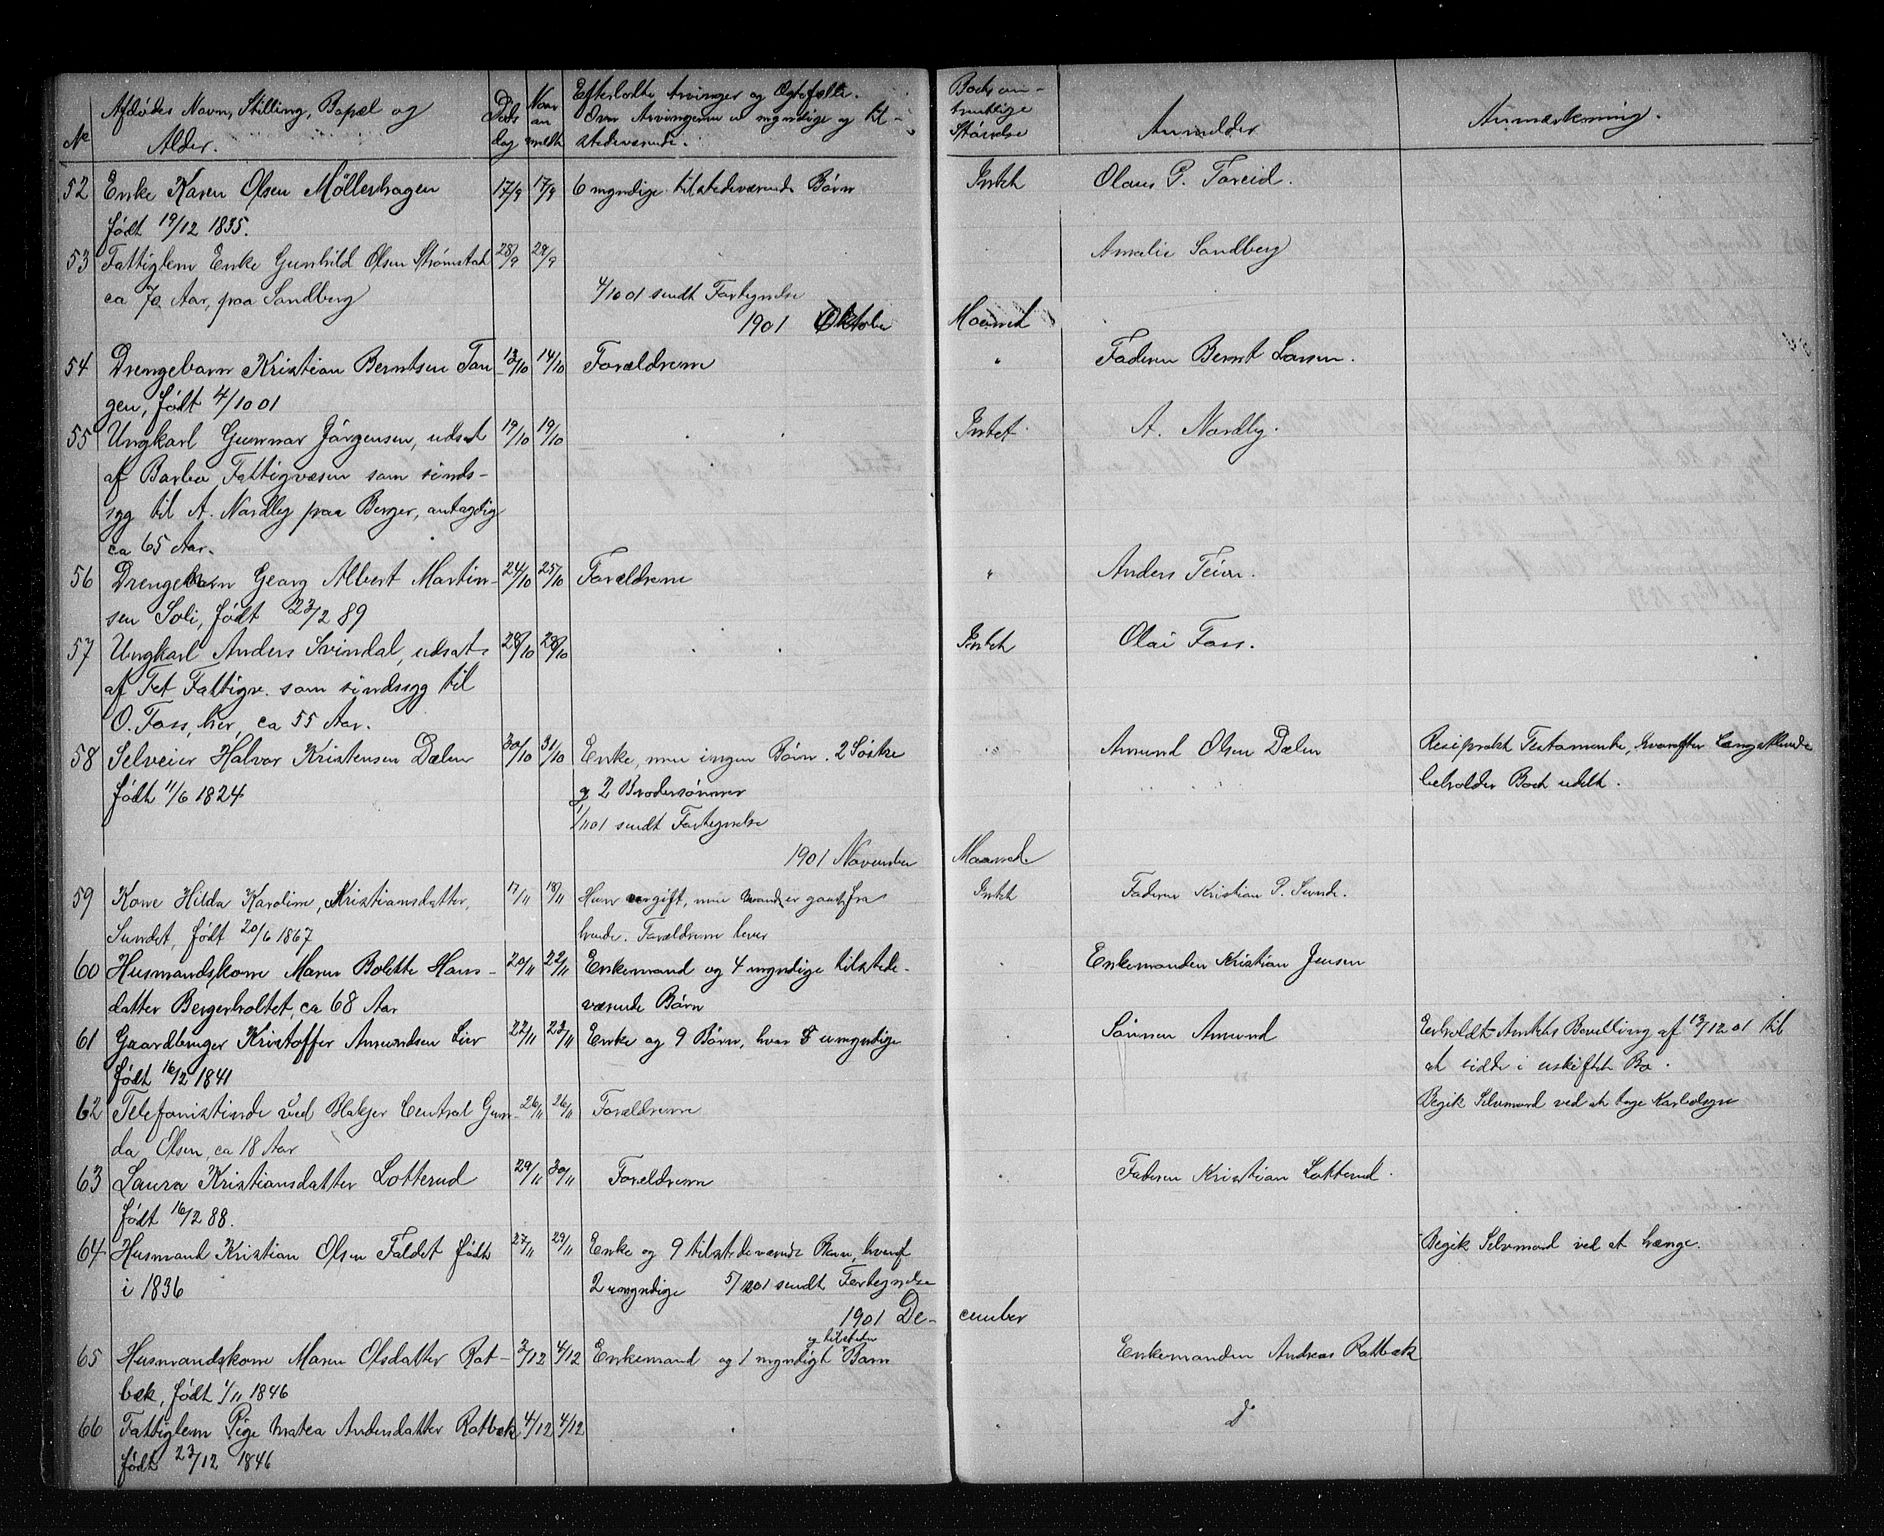 No Afdødes Navn, Stilling, Bopæl og Alder. Døds dag Naar an meldt Efterladte Arvinger og Ægtefælle. Om Arvingerne er myndige og tilstedeværende. Boets omtrentlige Størrelse Anmelder Anmærkning.
52 Enke Karen Olsen Möllerhagen 17/9 17/9 6 myndige tilstedeværende Børn Intet Olaus G. Toreid.
født 19/12 1835.
53 Fattiglem Enke Gunhild Olsen Strømstad 28/9 29/9 " Amalie Sandberg
ca 70 Aar, paa Sandberg 4/10 01 sendt Fortegnelse
1901 Oktober Maaned
54 Drengebarn Kristian Berntsen Tan 13/10 14/10 Forældrene " Faderen Bernt Larsen.
gen, født 4/10 01
55 Ungkarl Gunnar Jörgensen, udsat 19/10 19/10 . . Intet. A. Nordby.
af Barbo Fattigvæsen som sinds-
syg til A. Nordby paa Berger, antagelig
ca 65 Aar.
56 Drengebarn Georg Albert Martin- 24/10 25/10 Forældrene " Anders Teien.
sen Soli, født 23/2 89
57 Ungkarl Anders Svindal, udsat 28/10 28/10 . . Intet Olai Foss.
af Tet Fattigv. som sindssyg til
O. Foss, her, ca 55 Aar.
58 Selveier Halvor Kristensen Dælen 30/10 31/10 Enke, men ingen Børn. 2 Söstre " Amund Olsen Dælen Resiprokt Testamente, hvorefter Længstlevende
født 11/6 1824 og 2 Brodersønner beholder Boet udelt.
1/11 01 sendt Fortegnelse
1901 November Maaned.
59 Kone Hilda Karoline, Kristiansdatter, 17/11 18/11 Hun er gift, men Manden er gaaet fra Intet Faderen Kristian P. Sunde.
Sundet, født 20/6 1867 hende. Forældrene lever
60 Husmandskone Maren Bolette Hans- 20/11 22/11 Enkemand og 4 myndige tilstede- . Enkemanden Kristian Jensen
datter Bergerholtet, ca 68 Aar værende Børn
61 Gaardbruger Kristoffer Amundsen Lier 22/11 23/11 Enke og 9 Børn, hvor 5 umyndige . Sønnen Amund Erholdt Amtets Bevilling af 13/12 01 til
født 16/2 1841 at sidde i uskiftet Bo.
62 Telefonistinde ved Blakjer Central Gun- 26/11 26/11 Forældrene Begik Selvmord ved at tage Karbolsyre
da Olsen, ca 18 Aar
63 Laura Kristiansdatter Lotterud 29/11 30/11 Forældrene . Faderen Kristian Lotterud.
født 16/2 88.
64 Husmand Kristian Olsen Faldet født 27/11 29/11 Enke og 9 tilstedeværende Børn, hvoraf Begik Selvmord ved at hænge.
i 1836 2 umyndige 5/12 01 sendt Fortegnelse
1901 De- cember
65 Husmandskone Maren Olsdatter Rat- 3/12 4/12 Enkemand og 1 myndigt og tilsteder Barn Enkemanden Andreas Ratbæk
bæk, født 1/11 1846
66 Fattiglem Pige Matea Andersdatter Ratbæk 4/12 4/12 . . Do
født 23/12 1846